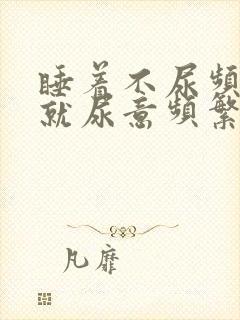 睡着不尿频
就尿意频繁
凡靡